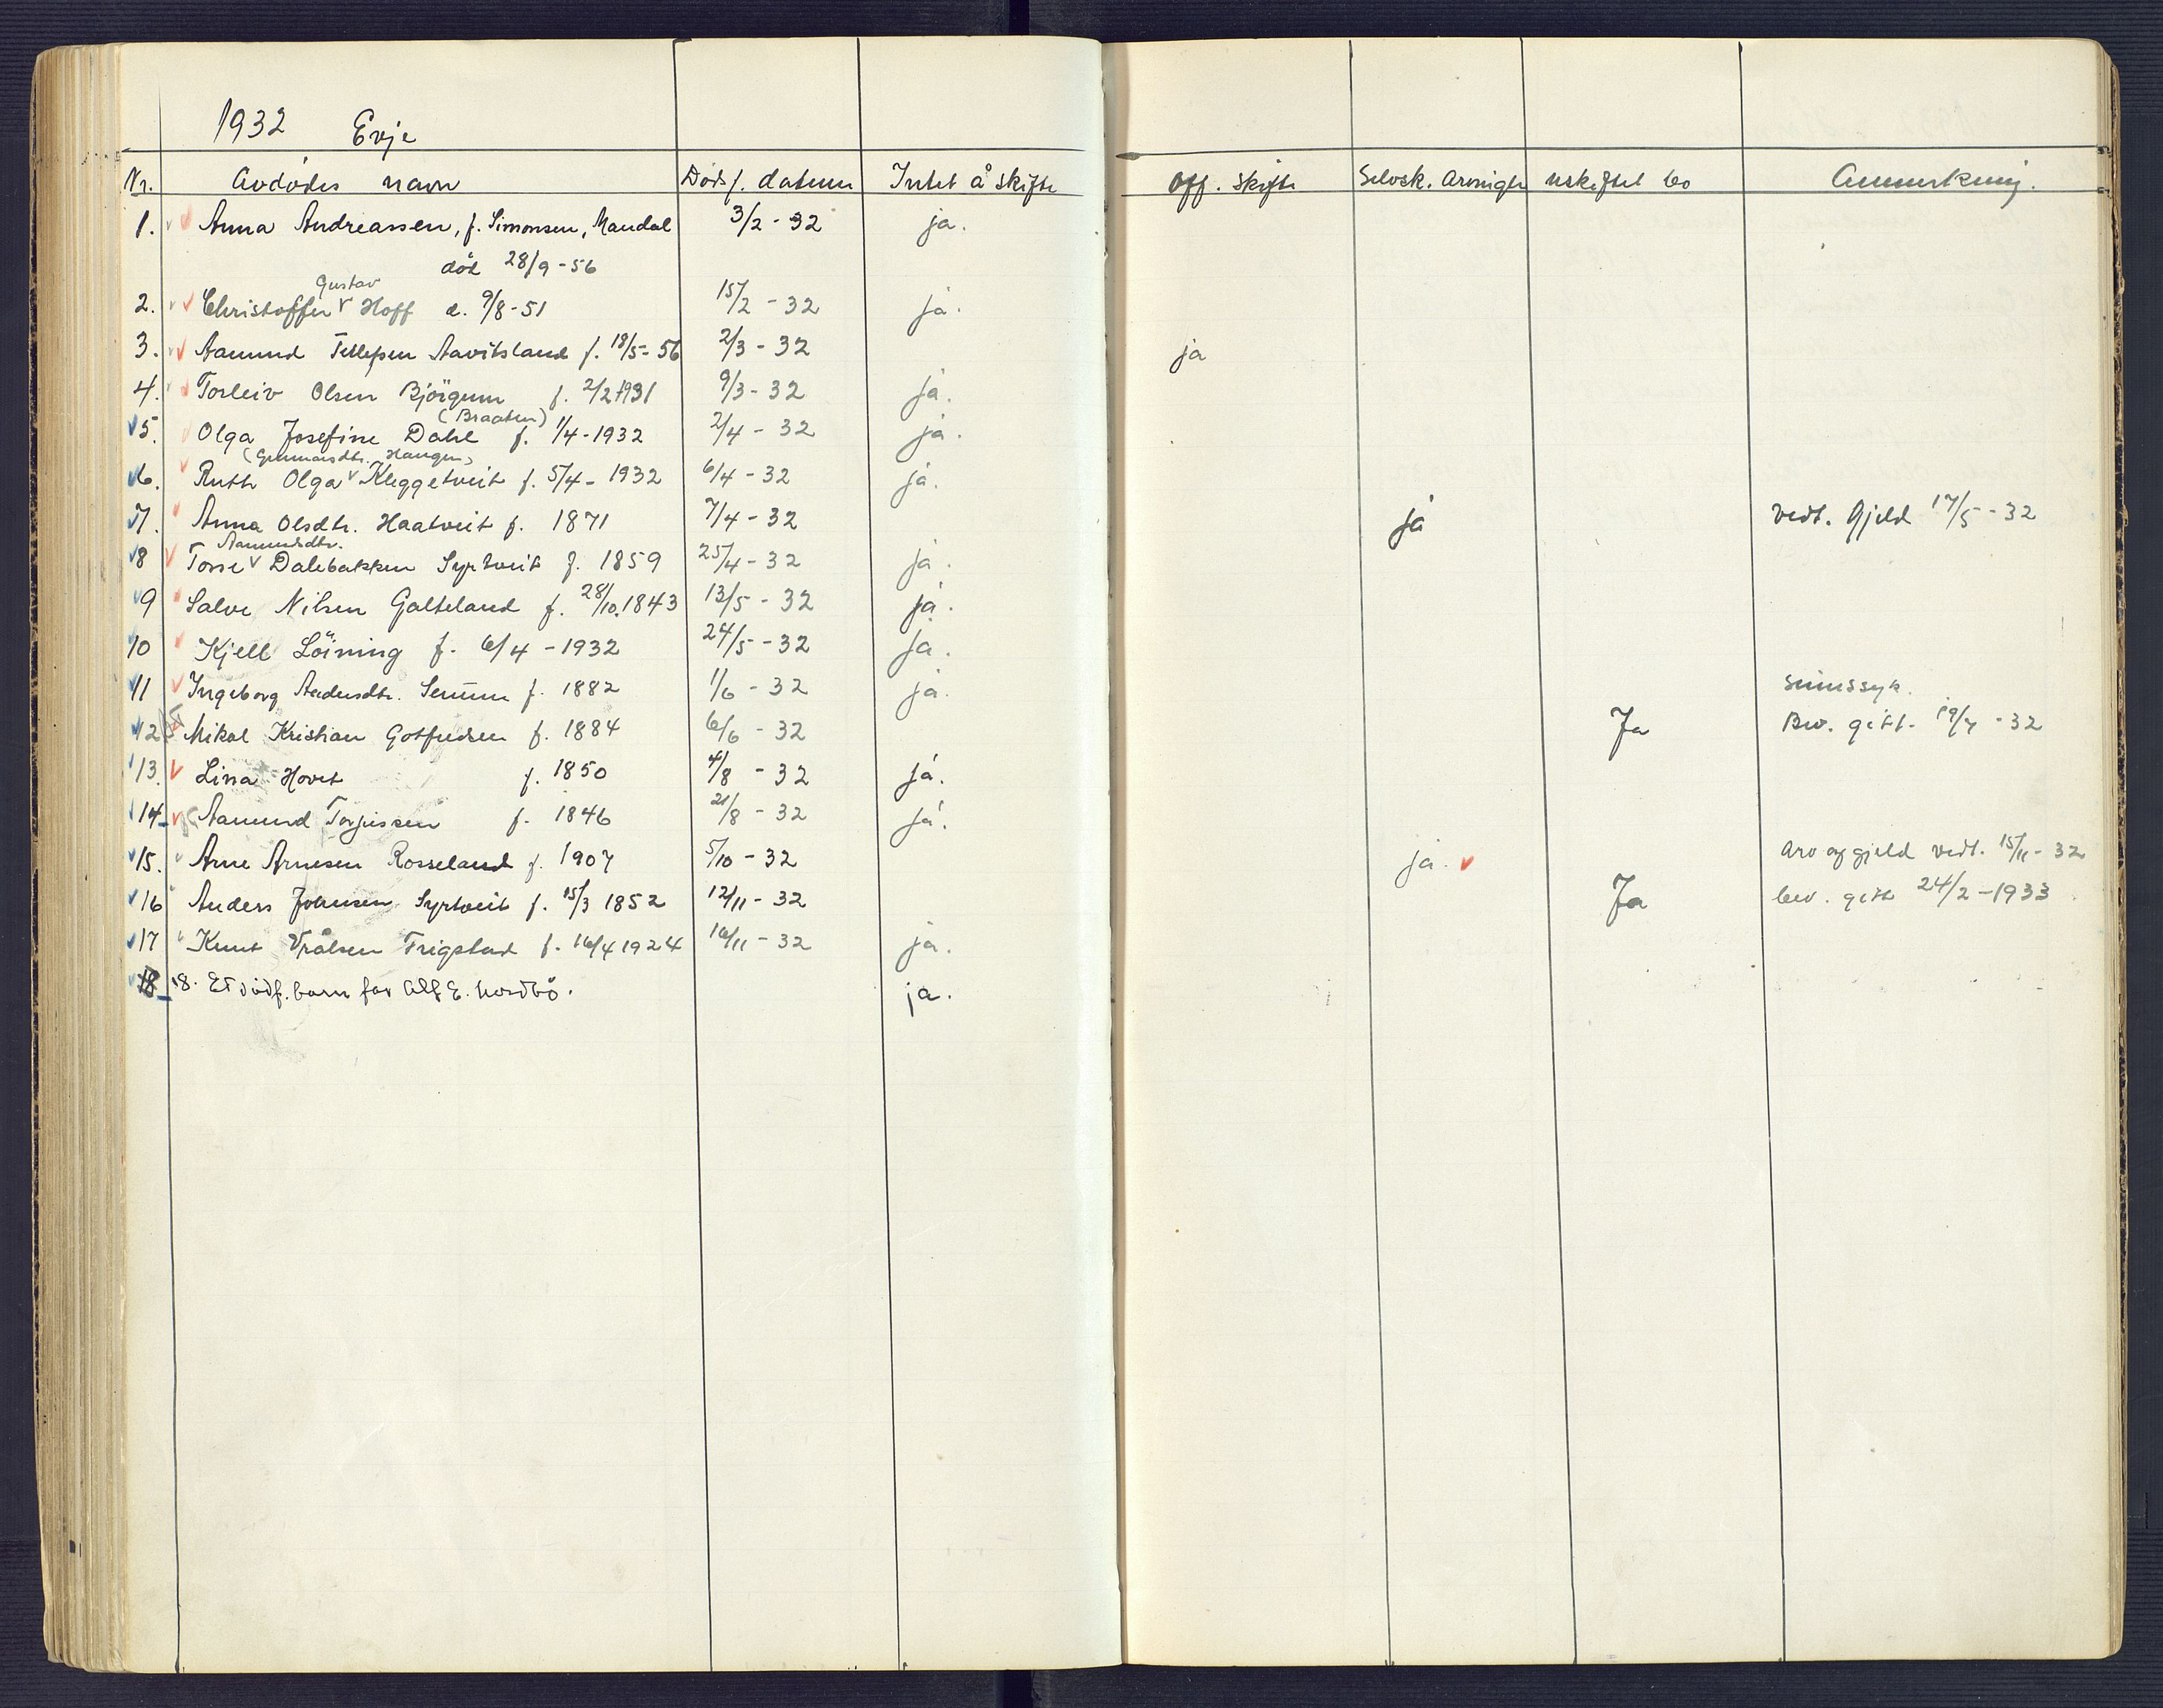 1932 Evje
Nr. Avdødes navn Døds f. datum Intet å skifte off. skifte Selvsk. Arvinger uskiftet bo Anmerkning.
1. Anna Andreassen, f. Simonsen, Mandal 3/2 - 32 ja.
døt 28/9 - 56
Gustav
2. Christoffer V Hoff d. 9/8 - 51 15/2 - 32 ja.
3. Aamund Tellefsen Aavitsland f. 18/5 - 56 2/3 - 32 ja
4. Torleiv Olsen Björgum f. 2/2 1931 9/3 - 32 ja.
(Braaten)
5. Olga Josefine Dahl f. 1/4 - 1932 2/4 - 32 ja.
(Gunnarsdtr. Haugen)
6. Ruth Olga V Kleggetveit f. 5/4 - 1932 6/4 - 32 ja.
7. Anna Olsdtr. Haatveit f. 1871 7/4 - 32 ja vedt. Gjeld 17/5 - 32
Aamundsdtr.
8 Tone V Dalebakken Syrtveit f. 1859 25/4 - 32 ja.
9 Salve Nilsen Galteland f. 28/10. 1843 13/5 - 32 ja.
10 Kjell Löining f. 6/4 - 1932 24/5 - 32 ja.
11 Ingeborg Andersdtr. Senum f. 1882 1/6 - 32 ja.
sinnssyk.
12 Mikal Kristian Gotfredsen f. 1884 6/6 - 32 Ja Bev. gitt. 19/7 - 32
13. Lina Hovet f. 1850 4/8 - 32 ja.
14 Aamund Torjussen f. 1846 21/8 - 32 ja.
15. Arne Arnesen Rosseland f. 1907 5/10 - 32 ja. Arv og gjeld vedt. 15/11 - 32
16 Anders Johnsen Syrtveit f. 15/3 1852 12/11 - 32 Ja bev. gitt 24/2 - 1933
17 Knut Vrålsen Trigstad f. 16/4 1924 16/11 - 32 ja.
18 18. Et dödf. barn far Alf E. Nordbö. ja.